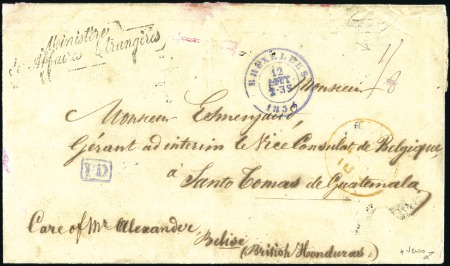 Ministère
Affaires Etrangères
BRUXELLES
12
AOUT
Monsieur
Monsieur
Gérant ad interim le Vice Consulat de Belgique,
à
PD
Santo Tomas de Guatemala
Care of Mr Alexander,
Belise
(British Honduras.)